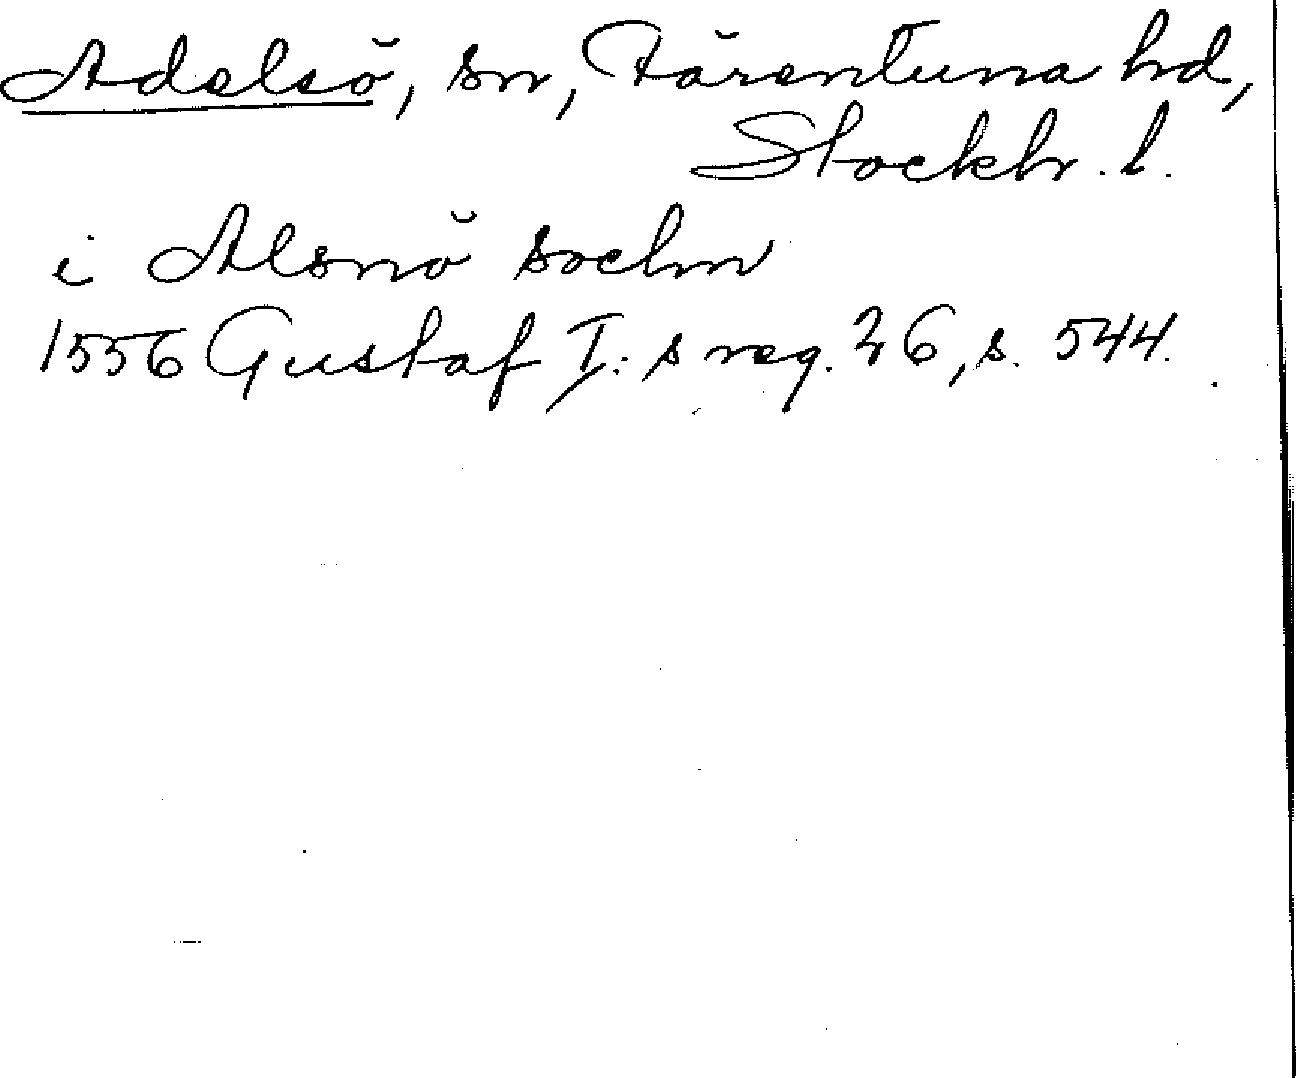 Adelsö, sn, Färentuna hd,
Stockh. l.
i Alsnö sochn
1556 Gustaf I: s reg. 26, s. 544.